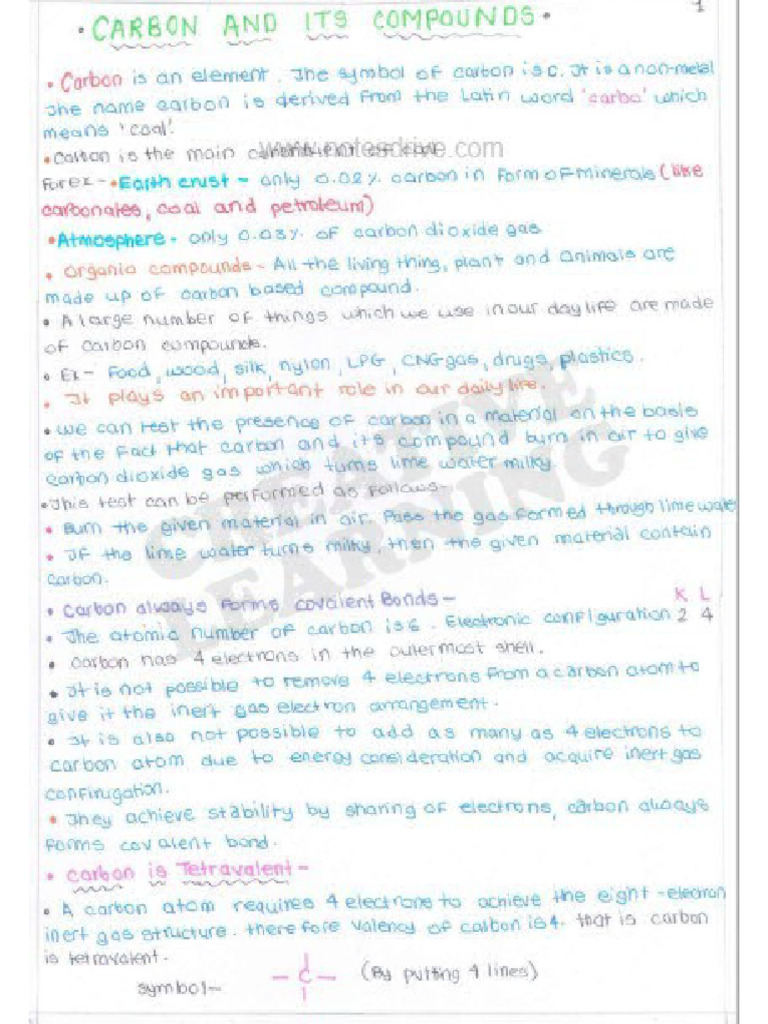 1
• CARBON AND ITS COMPOUNDS •
• Carbon is an element. The symbol of carbon is C. It is a non-metal
The name carbon is derived from the Latin word 'carbo' which
means 'coal'.
• Carbon is the main constituent of coal
www.notesdrive.com
For ex - • Earth crust - only 0.02% carbon in form of minerals (like
carbonates, coal and petroleum)
• Atmosphere - only 0.03% of carbon dioxide gas
• Organic compounds - All the living thing, plant and animals are
made up of carbon based compound.
• A large number of things which we use in our day life are made
of carbon compounds.
• Ex - Food, wood, silk, nylon, LPG, CNG gas, drugs, plastics.
• It plays an important role in our daily life.
• We can test the presence of carbon in a material on the basis
of the fact that carbon and its compound burn in air to give
carbon dioxide gas which turns lime water milky.
CREATIVE
LEARNING
• This test can be performed as follows-
• Burn the given material in air. Pass the gas formed through lime water
• If the lime water turns milky, then the given material contain
carbon.
• Carbon always forms covalent Bonds - K L
• The atomic number of carbon is 6. Electronic configuration 2 4
• Carbon has 4 electrons in the outermost shell.
• It is not possible to remove 4 electrons from a carbon atom to
give it the inert gas electron arrangement.
• It is also not possible to add as many as 4 electrons to
carbon atom due to energy consideration and acquire inert gas
confinugation.
• They achieve stability by sharing of electrons, carbon always
forms covalent bond.
• Carbon is Tetravalent -
• A carbon atom requires 4 electrons to achieve the eight - electron
inert gas structure. therefore valency of carbon is 4. that is carbon
is tetravalent.
symbol - — C — (By putting 4 lines)